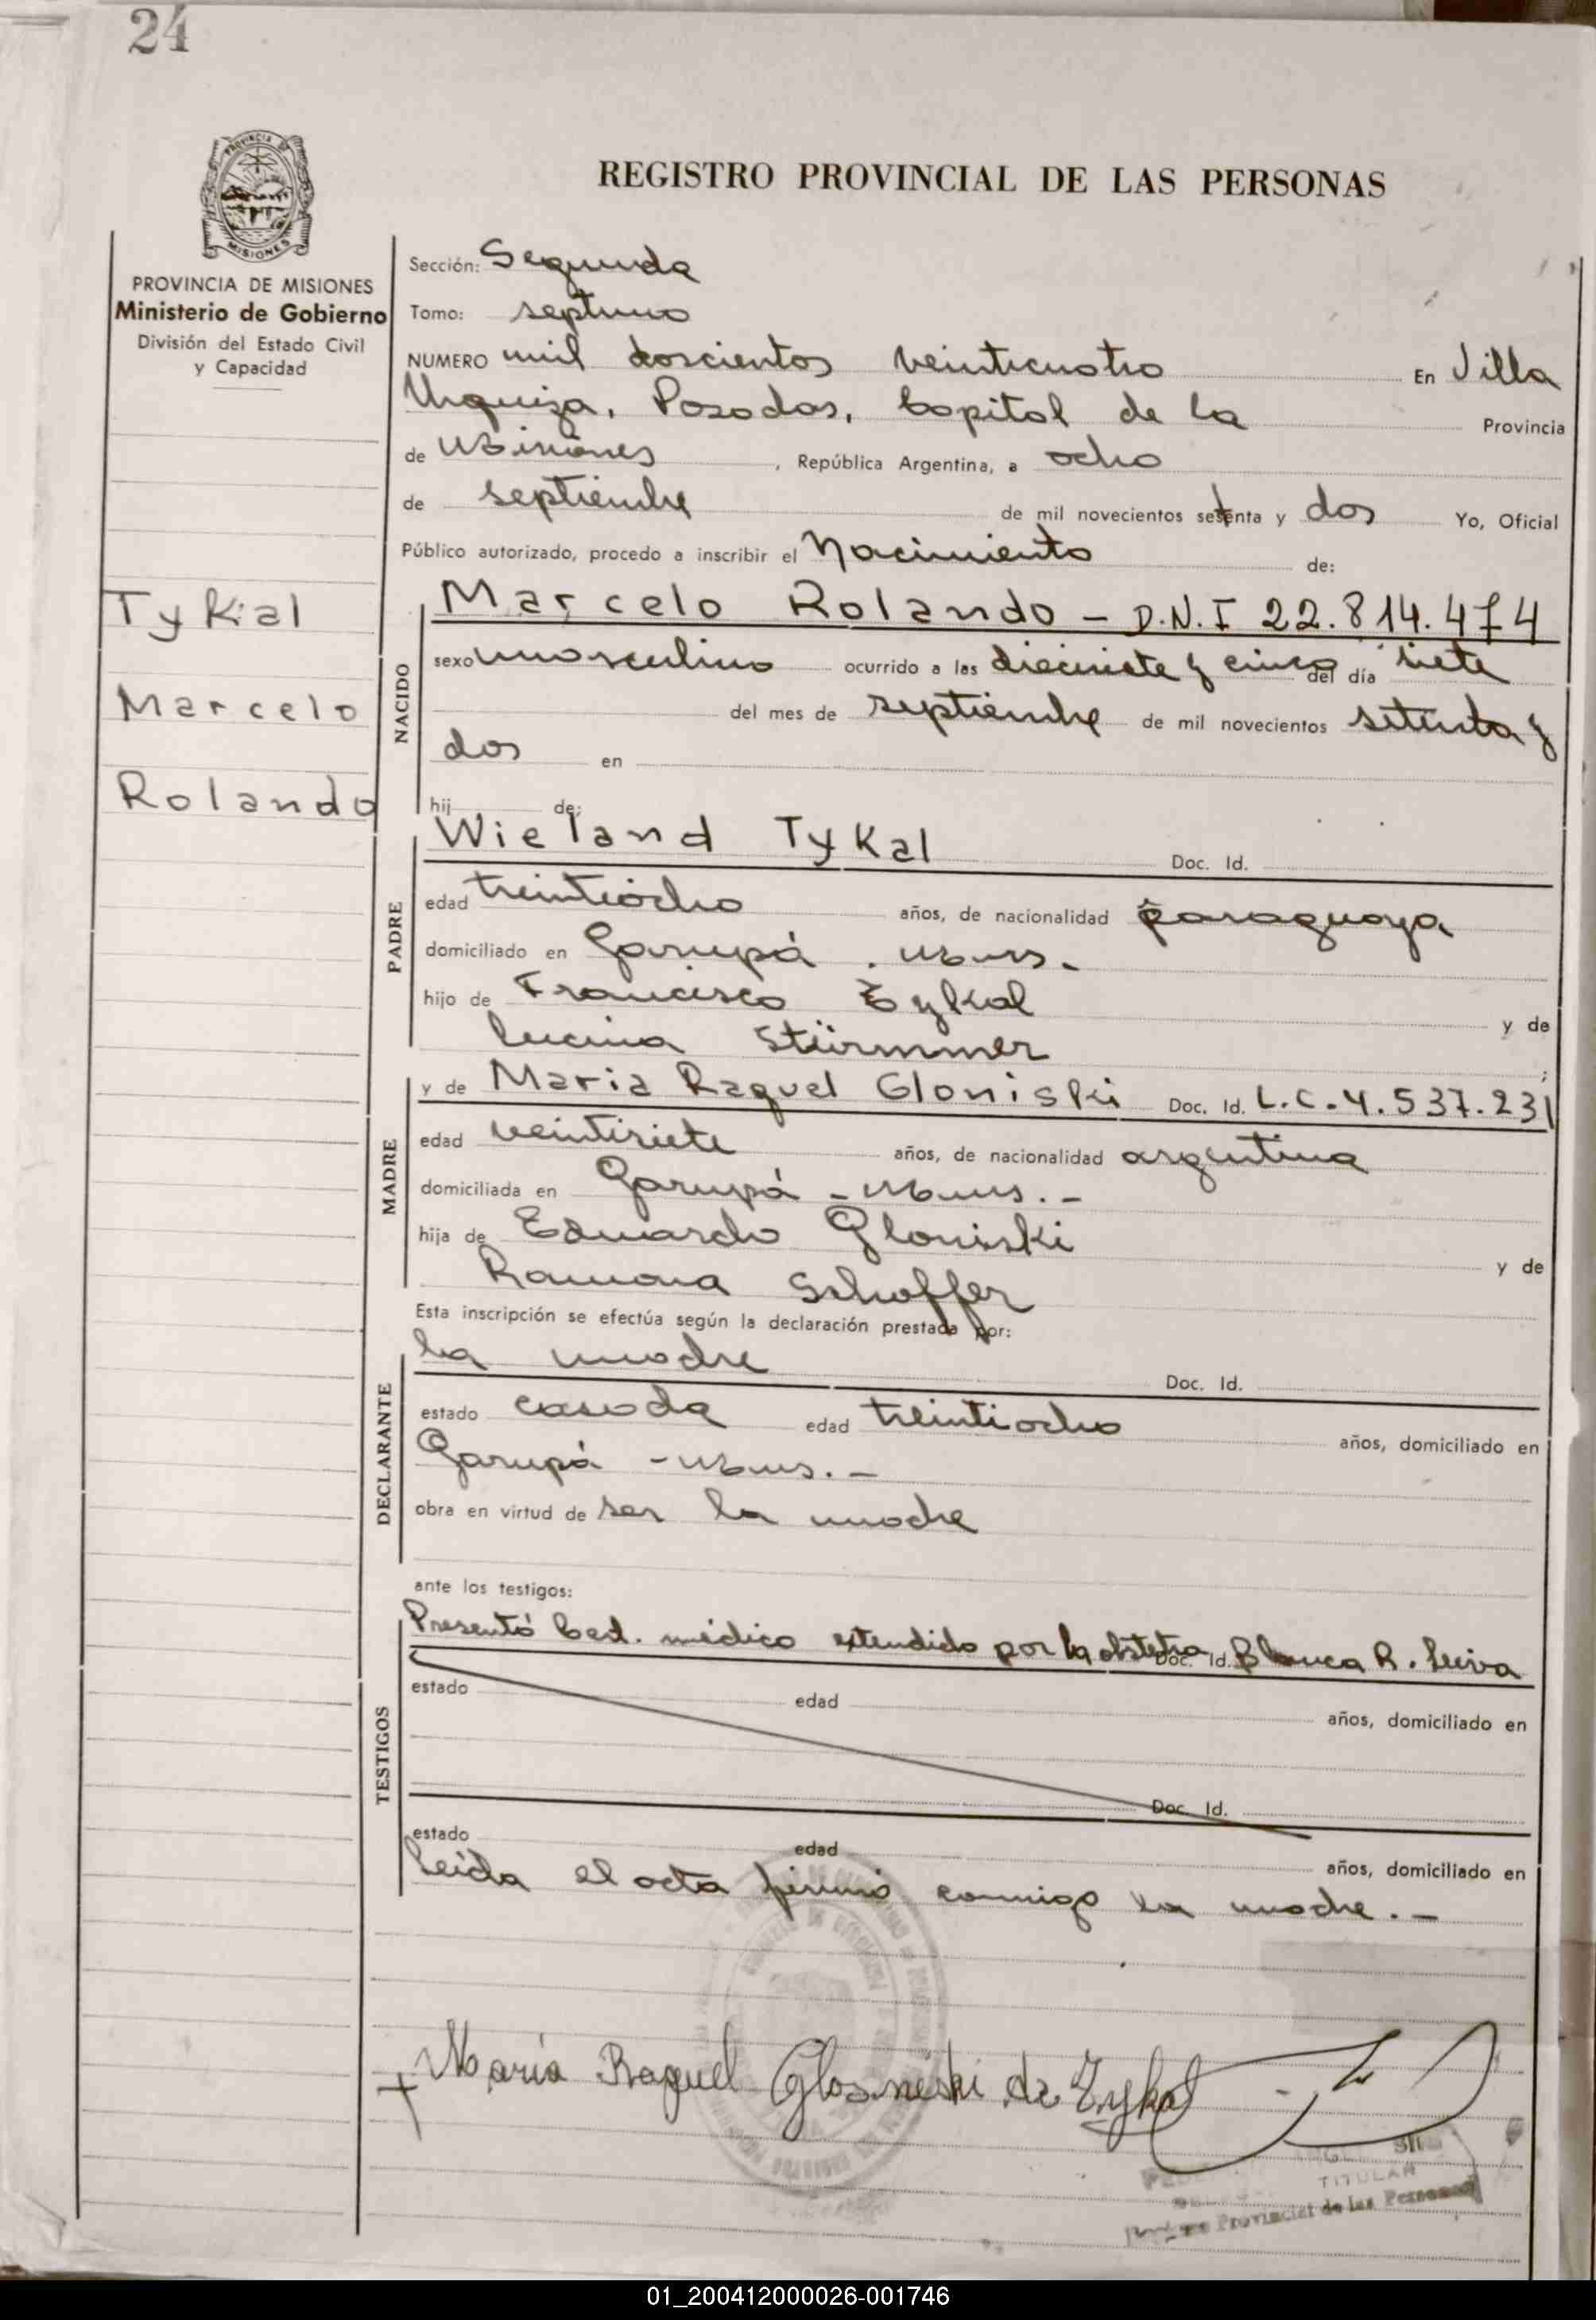 24
PROVINCIA DE
MISIONES
REGISTRO PROVINCIAL DE LAS PERSONAS
PROVINCIA DE MISIONES
Ministerio de Gobierno
División del Estado Civil
y Capacidad
Tykal
Marcelo
Rolando
Sección: Segunda
Tomo: septimo
NUMERO mil doscientos veinticuatro En Villa
Urquiza, Posadas, Capital de la Provincia
de Misiones, República Argentina, a ocho
de septiembre de mil novecientos setenta y dos Yo, Oficial
Público autorizado, procedo a inscribir el Nacimiento de:
NACIDO
Marcelo Rolando - D.N.I 22.814.474
sexo masculino ocurrido a las diecisiete y cinco del día siete
del mes de septiembre de mil novecientos setenta y
dos en
hij de:
PADRE
Wieland Tykal Doc. Id.
edad treintiocho años, de nacionalidad paraguaya
domiciliado en Garupá . Mnes.-
hijo de Francisco Tykal y de
Lucina Stürmmer ;
MADRE
y de Maria Raquel Gloniski Doc. Id. L.C.4.537.231
edad veintisiete años, de nacionalidad argentina
domiciliada en Garupá - Mnes.-
hija de Eduardo Gloniski y de
Ramona Schoffer
Esta inscripción se efectúa según la declaración prestada por:
DECLARANTE
la madre Doc. Id.
estado casada edad treintiocho años, domiciliado en
Garupá - Mnes.-
obra en virtud de ser la madre
ante los testigos:
TESTIGOS
Presentó Cert. médico extendido por la obstetra Doc. Id. Blanca R. Leiva
estado edad años, domiciliado en
Doc. Id.
estado edad años, domiciliado en
Leida el acta firmó conmigo la madre.-
María Raquel Glosneski de Tykal
TITULAR
Provincial de las Personas
01_200412000026-001746